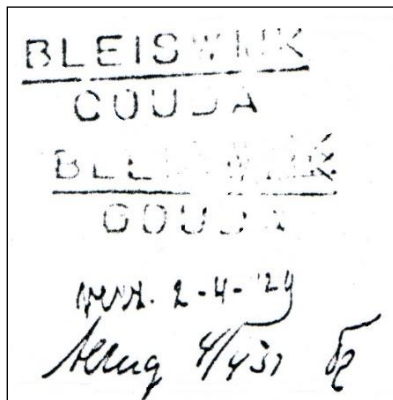 BLEISWIJK
GOUDA
BLEISWIJK
GOUDA
2-4-'29
terug